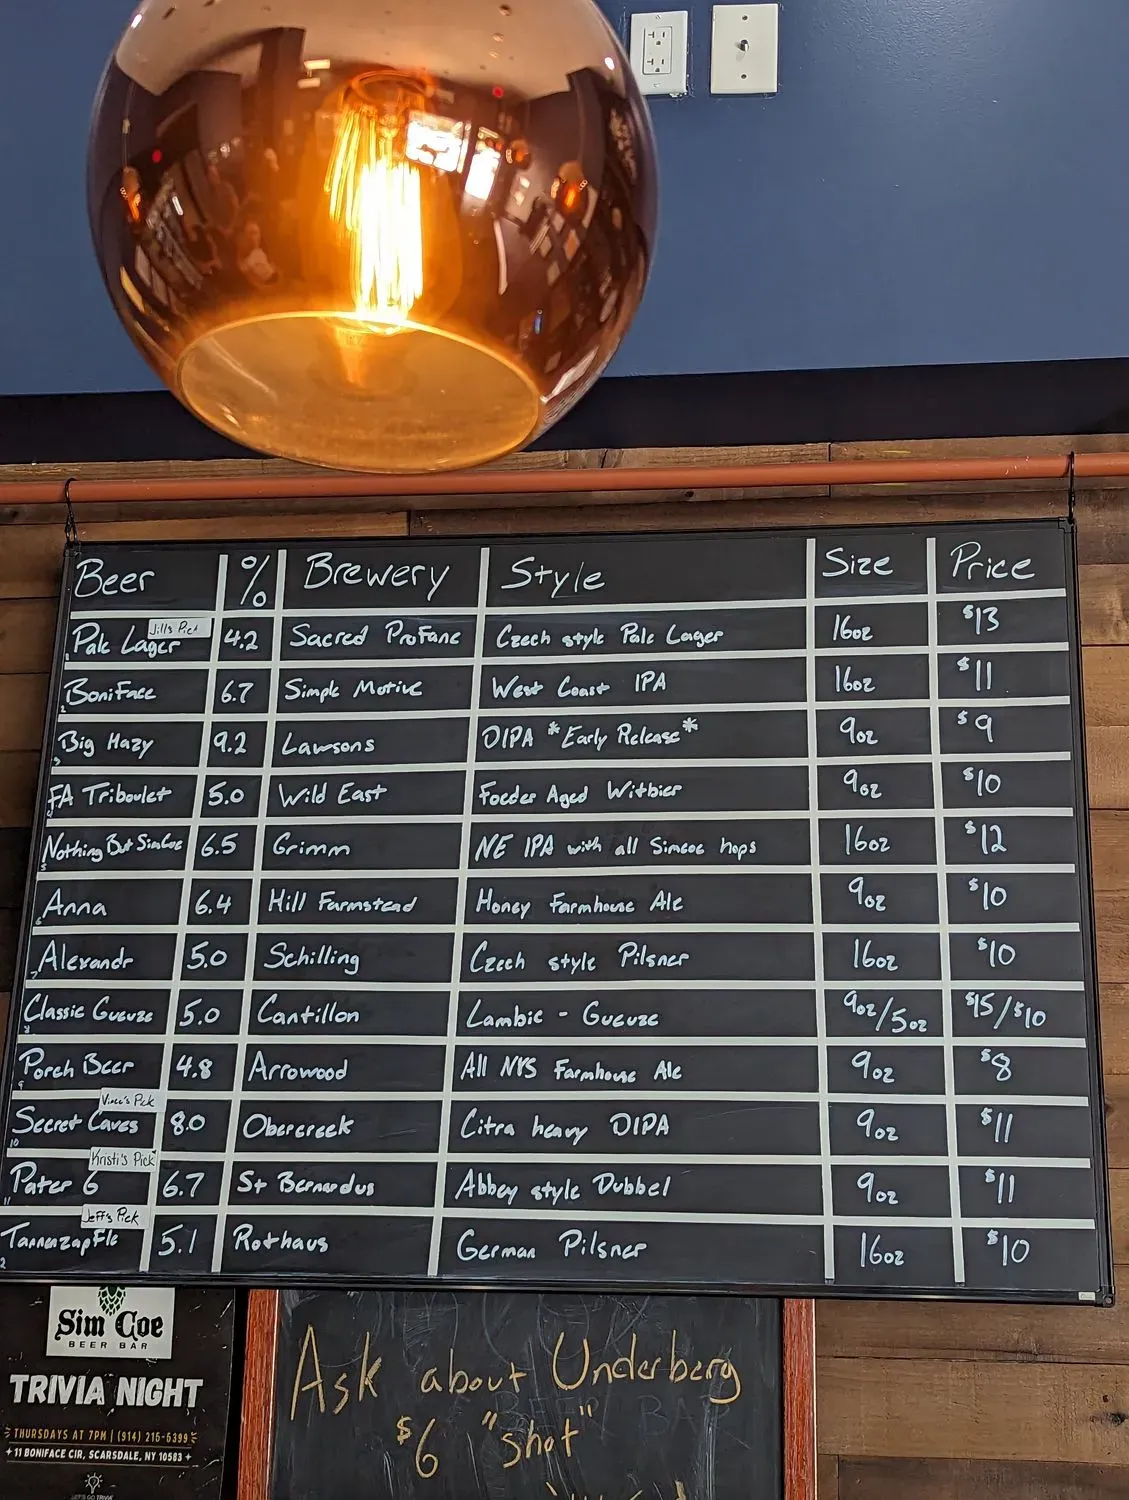 Beer % Brewery Style Size Price
Jill's Pick
1 Pale Lager 4.2 Sacred Profane Czech style Pale Lager 16oz $13
2 Boniface 6.7 Simple Motive West Coast IPA 16oz $11
3 Big Hazy 9.2 Lawsons DIPA *Early Release* 9oz $9
FA Triboulet 5.0 Wild East Foeder Aged Witbier 9oz $10
5 Nothing But SimCoe 6.5 Grimm NE IPA with all Simcoe hops 16oz $12
6 Anna 6.4 Hill Farmstead Honey Farmhouse Ale 9oz $10
7 Alexandr 5.0 Schilling Czech style Pilsner 16oz $10
8 Classic Gueuze 5.0 Cantillon Lambic - Gueuze 9oz/5oz $15/$10
9 Porch Beer 4.8 Arrowood All NYS Farmhouse Ale 9oz $8
Vinni's Pick
10 Secret Caves 8.0 Obercreek Citra heavy DIPA 9oz $11
Kristi's Pick
11 Pater 6 6.7 St Bernardus Abbey style Dubbel 9oz $11
Jeff's Pick
2 Tannenzapfle 5.1 Rothaus German Pilsner 16oz $10
Sim Coe
BEER BAR
TRIVIA NIGHT
THURSDAYS AT 7PM | (914) 215-5399
11 BONIFACE CIR, SCARSDALE, NY 10583
LET'S GO TRIVIA
Ask about Underberg
$6 "shot"